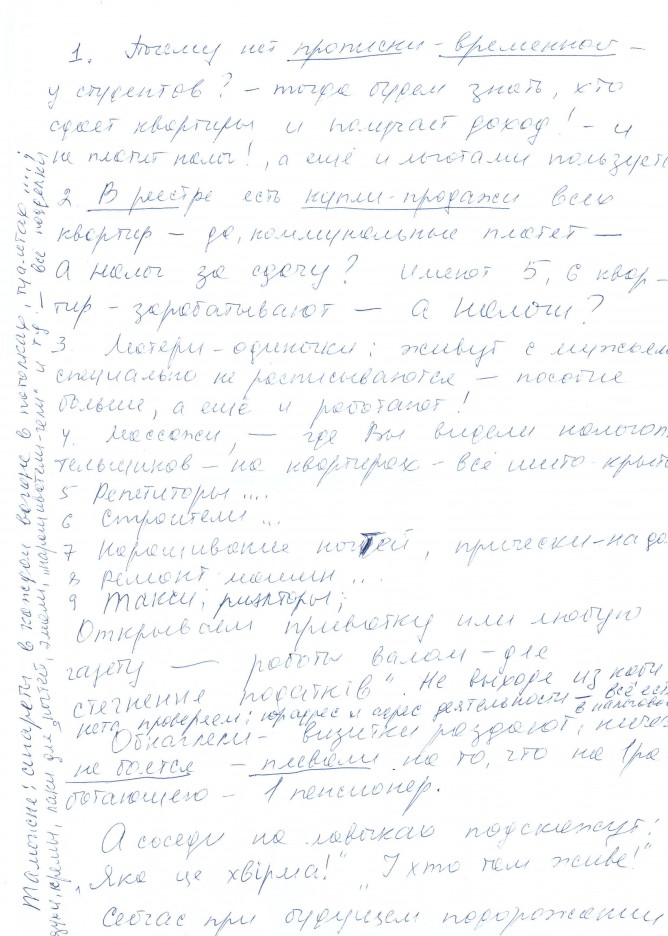 1. Почему нет прописки - временной -
у студентов? - тогда будем знать, кто
сдает квартиры и получает доход! - и
не платит налог!, а ещё и льготами пользуетс
2. В реестре есть купли-продажи всех
квартир - да, коммунальные платят -
А налог за сдачу? Имеют 5, 6 квар-
тир - зарабатывают - а налоги?
3. Матери-одиночки; живут с мужьями
специально не расписываются - пособие
больше, а ещё и работают!
4. Массажи, - где Вы видели налогопла
тельщиков - на квартирах - всё шито-крыто
5 Репетиторы ....
6 Строители ...
7 Наращивание ногтей, прически-на до
8 Ремонт машин ...
9 Такси; риэлторы;
Открываем привозку или любую
газету - работы валом - для
стягнення податків". Не выходя из каби
нета, проверяем; юрадрес и адрес деятельности - всё есть
в налоговой
Обнаглели - визитки раздают, ничего
не боятся - плевали на то, что на 1 ра
ботающего - 1 пенсионер.
А соседи на лавочках подскажут:
„Яка це хвірма!" „І хто там живе!"
Сейчас при будущем подорожании
Таможня: сигареты в каждом вагоне в потолках, туалетах ...,
духи, кремы, лаки для ногтей, эмали, и т.д. - всё подделки